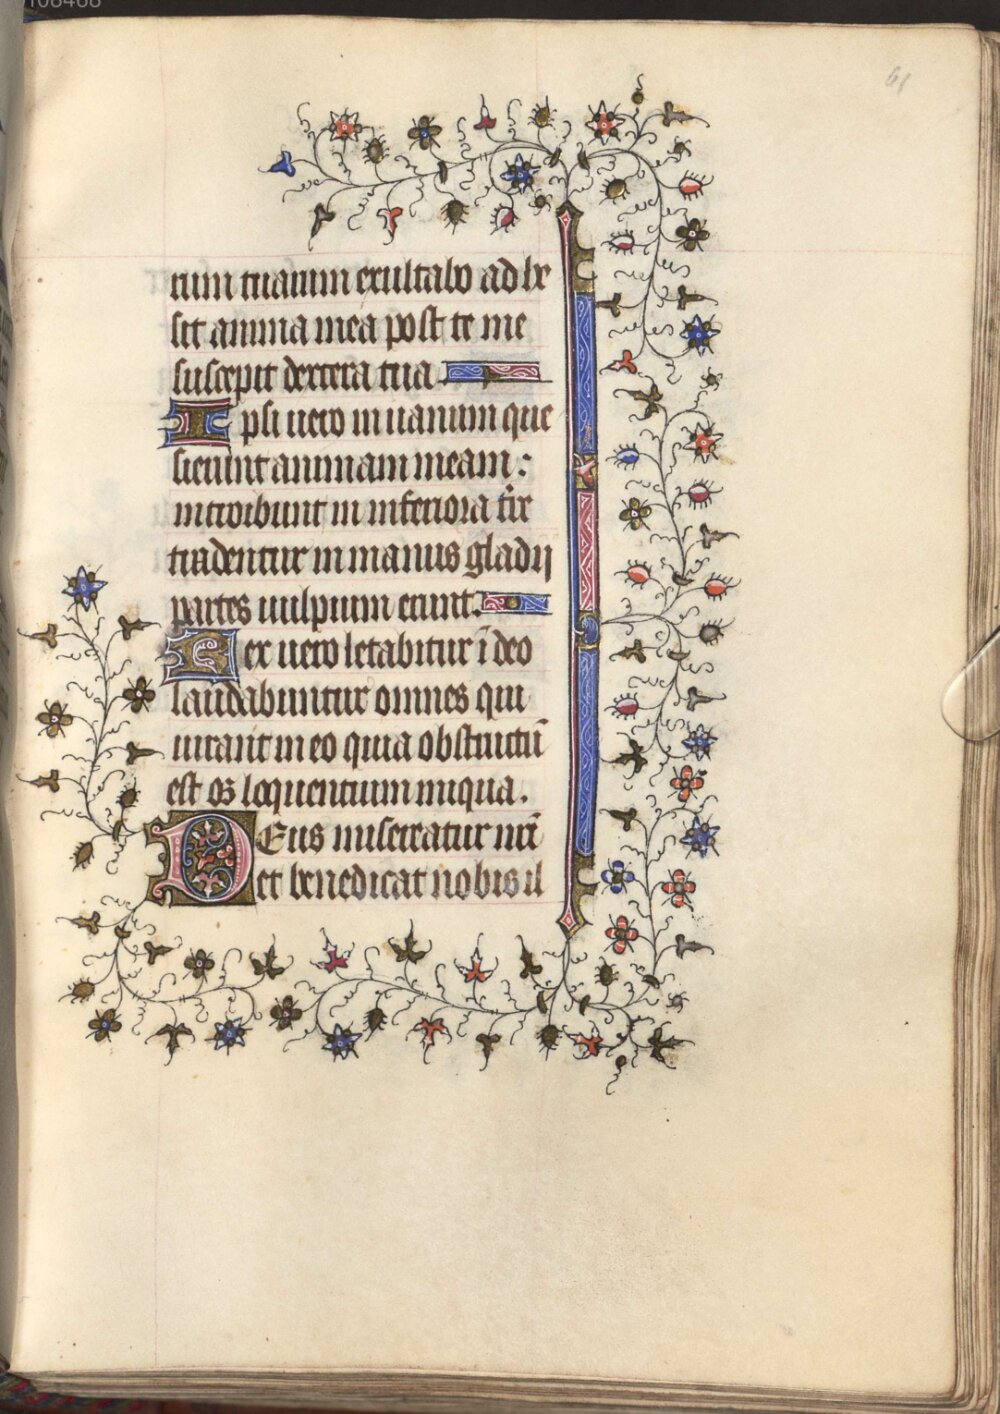 61
rum tuarum exultabo adhe
sit anima mea post te me
suscepit dextera tua
Ipsi uero in uanum que
sierunt animam meam:
introibunt in inferiora t̃re
tradentur in manus gladij
partes uulpium erunt.
Rex uero letabitur ĩ deo
laudabuntur omnes qui
iurant in eo quia obstructũ
est os loquentium iniqua.
Deus misereatur nr̃i
et benedicat nobis il